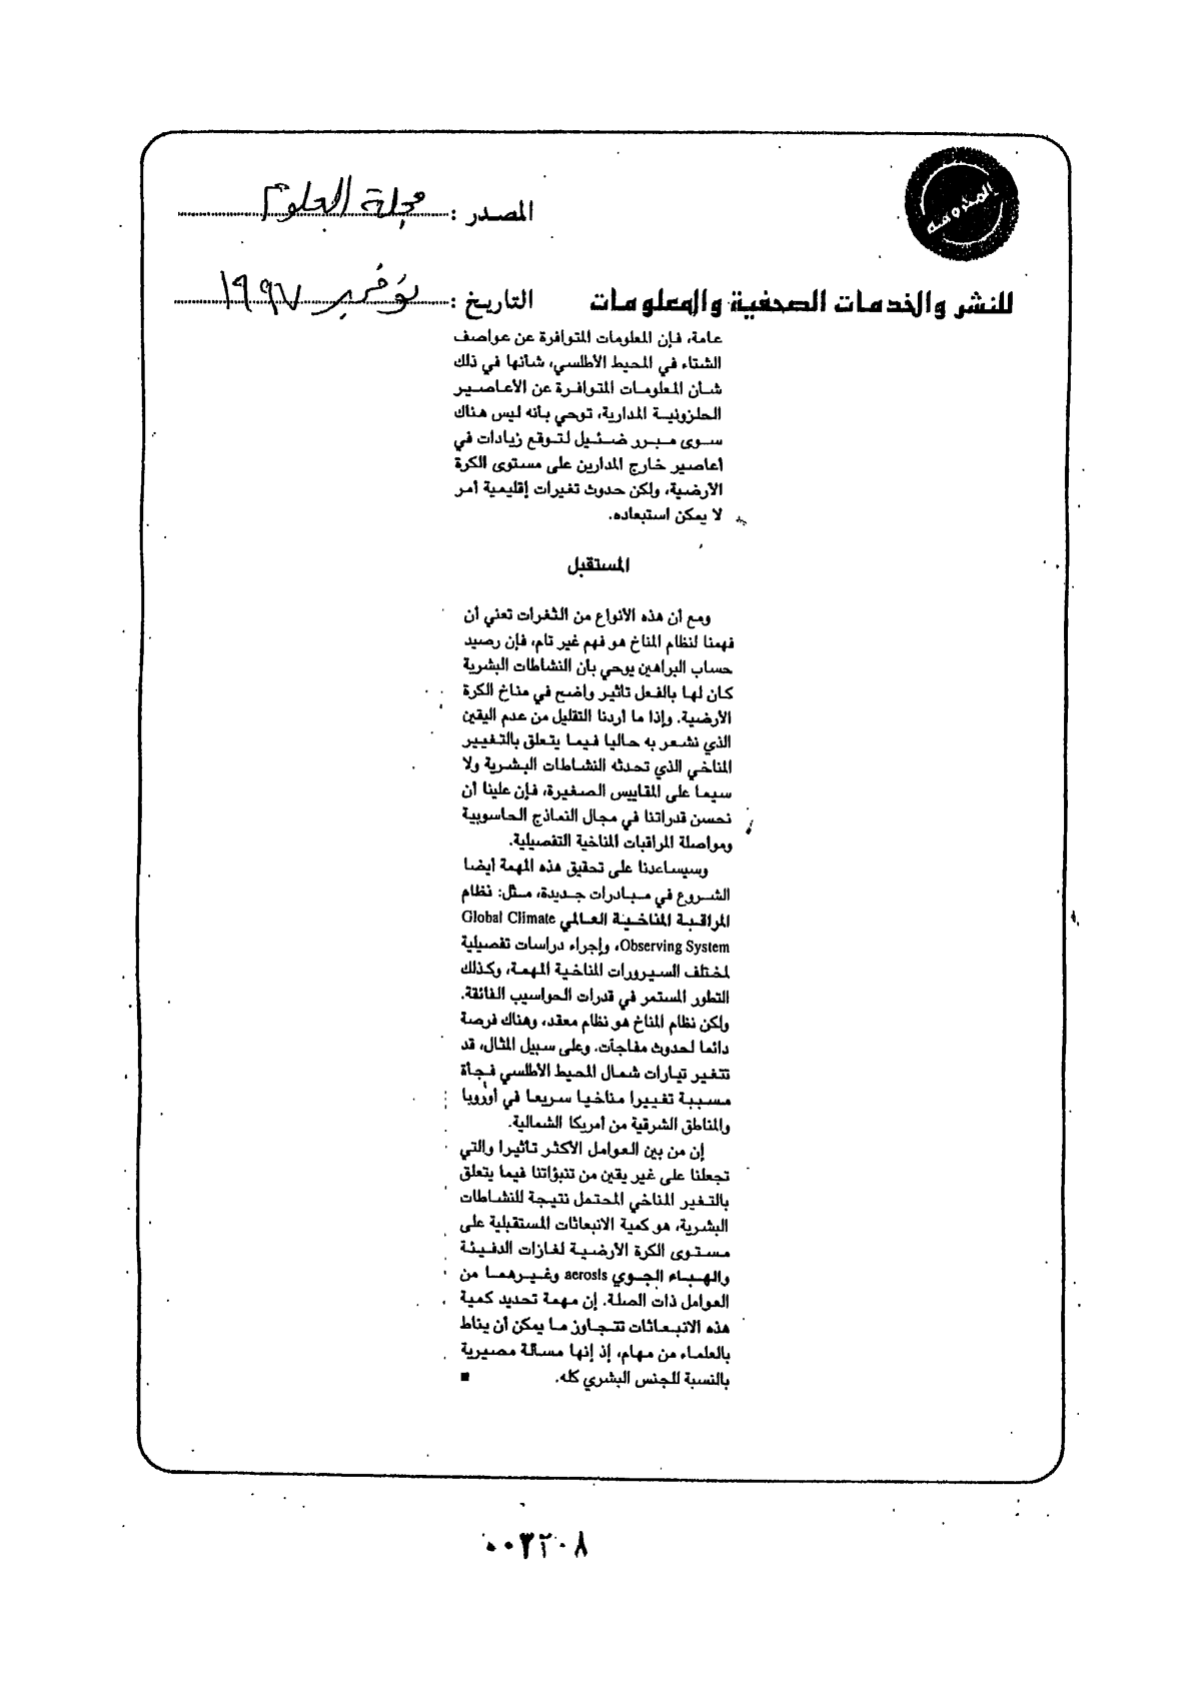 المصدر : مجلة العلوم
للنشر والخدمات الصحفية والمعلومات
التاريخ : نوفمبر ١٩٩٧
عامة، فإن المعلومات المتوافرة عن عواصف
الشتاء في المحيط الأطلسي، شأنها في ذلك
شأن المعلومات المتوافرة عن الأعاصير
الحلزونية المدارية، توحي بأنه ليس هناك
سوى مبرر ضئيل لتوقع زيادات في
أعاصير خارج المدارين على مستوى الكرة
الأرضية، ولكن حدوث تغيرات إقليمية أمر
لا يمكن استبعاده.
المستقبل
ومع أن هذه الأنواع من الثغرات تعني أن
فهمنا لنظام المناخ هو فهم غير تام، فإن رصيد
حساب البراهين يوحي بأن النشاطات البشرية
كان لها بالفعل تأثير واضح في مناخ الكرة
الأرضية. وإذا ما أردنا التقليل من عدم اليقين
الذي نشعر به حاليا فيما يتعلق بالتغيير
المناخي الذي تحدثه النشاطات البشرية ولا
سيما على المقاييس الصغيرة، فإن علينا أن
نحسن قدراتنا في مجال النماذج الحاسوبية
ومواصلة المراقبات المناخية التفصيلية.
وسيساعدنا على تحقيق هذه المهمة أيضا
الشروع في مبادرات جديدة، مثل: نظام
المراقبة المناخية العالمي Global Climate
Observing System، وإجراء دراسات تفصيلية
لمختلف السيرورات المناخية المهمة، وكذلك
التطور المستمر في قدرات الحواسيب الفائقة.
ولكن نظام المناخ هو نظام معقد، وهناك فرصة
دائما لحدوث مفاجآت. وعلى سبيل المثال، قد
تتغير تيارات شمال المحيط الأطلسي فجأة
مسببة تغييرا مناخيا سريعا في أوروبا
والمناطق الشرقية من أمريكا الشمالية.
إن من بين العوامل الأكثر تأثيرا والتي
تجعلنا على غير يقين من تنبؤاتنا فيما يتعلق
بالتغير المناخي المحتمل نتيجة للنشاطات
البشرية، هو كمية الانبعاثات المستقبلية على
مستوى الكرة الأرضية لغازات الدفيئة
والهباء الجوي aerosls وغيرهما من
العوامل ذات الصلة. إن مهمة تحديد كمية
هذه الانبعاثات تتجاوز ما يمكن أن يناط
بالعلماء من مهام، إذ إنها مسألة مصيرية
بالنسبة للجنس البشري كله. ■